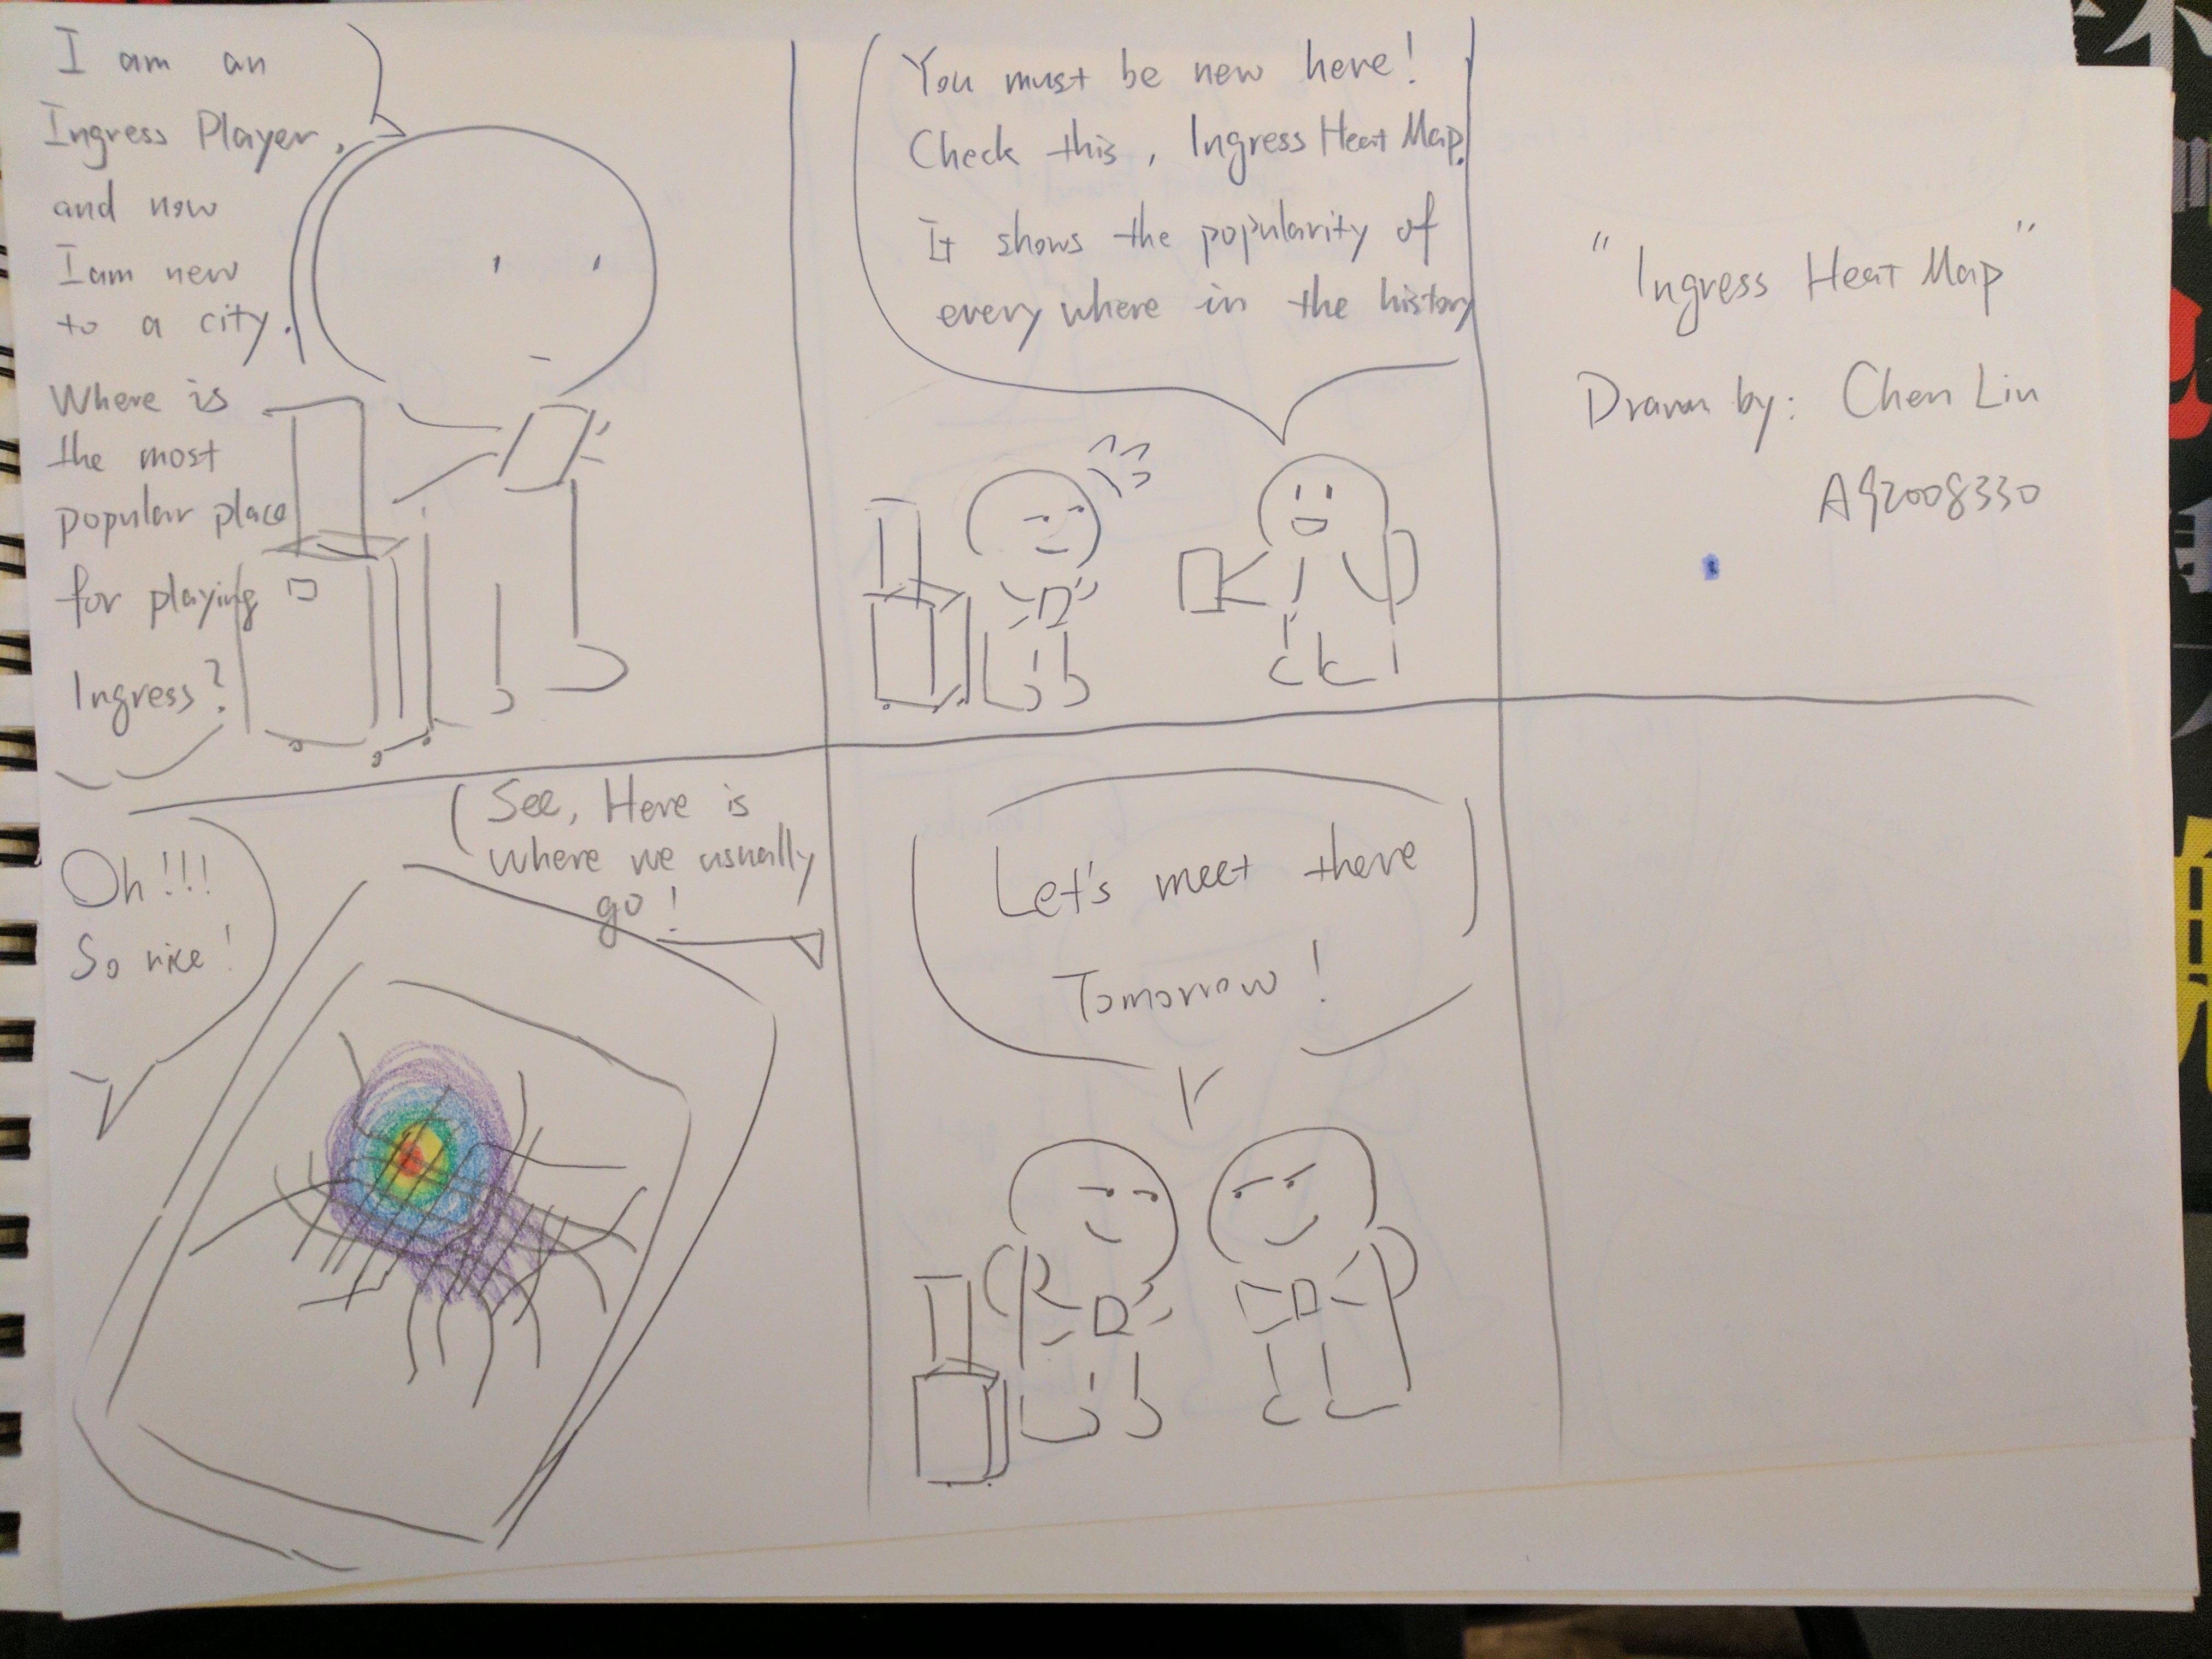 I am an
Ingress Player,
and now
I am new
to a city.
Where is
the most
popular place
for playing
Ingress?
You must be new here!
Check this, Ingress Heat Map.
It shows the popularity of
every where in the history
"Ingress Heat Map"
Drawn by: Chen Lin
A92008330
Oh!!!
So nice!
See, Here is
where we usually
go!
Let's meet there
Tomorrow!